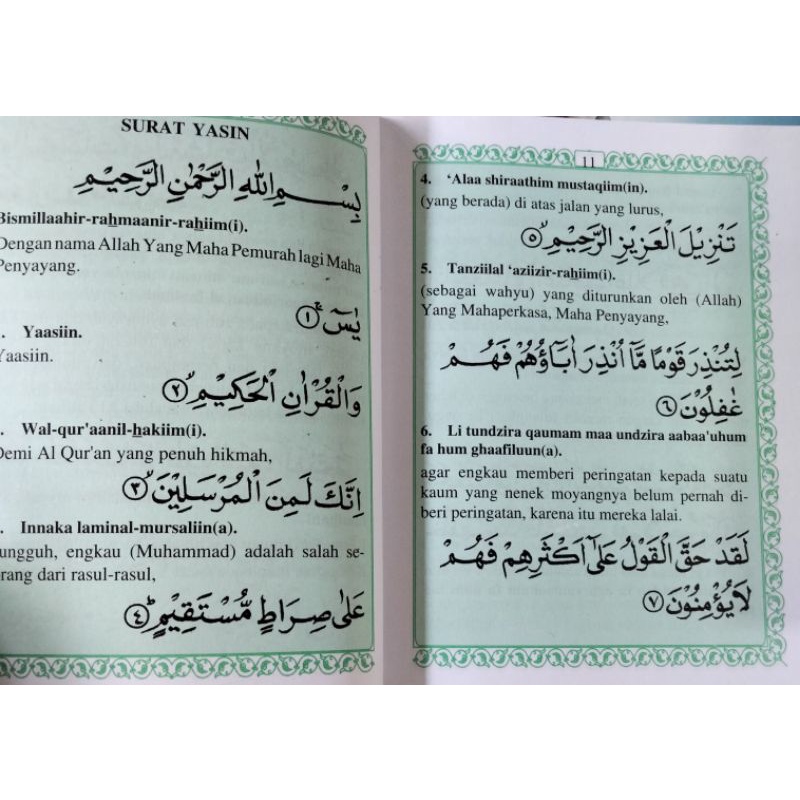 SURAT YASIN
بِسْمِ اللهِ الرَّحْمٰنِ الرَّحِيْمِ
Bismillaahir-rahmaanir-rahiim(i).
Dengan nama Allah Yang Maha Pemurah lagi Maha
Penyayang.
يٰسۤ ۚ ﴿١﴾
. Yaasiin.
Yaasiin.
وَالْقُرْاٰنِ الْحَكِيْمِۙ ﴿٢﴾
. Wal-qur'aanil-hakiim(i).
Demi Al Qur'an yang penuh hikmah,
اِنَّكَ لَمِنَ الْمُرْسَلِيْنَۙ ﴿٣﴾
. Innaka laminal-mursaliin(a).
ungguh, engkau (Muhammad) adalah salah se-
rang dari rasul-rasul,
عَلٰى صِرَاطٍ مُّسْتَقِيْمٍۗ ﴿٤﴾
11
4. ‘Alaa shiraathim mustaqiim(in).
(yang berada) di atas jalan yang lurus,
تَنْزِيْلَ الْعَزِيْزِ الرَّحِيْمِۙ ﴿٥﴾
5. Tanziilal ‘aziizir-rahiim(i).
(sebagai wahyu) yang diturunkan oleh (Allah)
Yang Mahaperkasa, Maha Penyayang,
لِتُنْذِرَ قَوْمًا مَّآ اُنْذِرَ اٰبَاۤؤُهُمْ فَهُمْ
غٰفِلُوْنَ ﴿٦﴾
6. Li tundzira qaumam maa undzira aabaa'uhum
fa hum ghaafiluun(a).
agar engkau memberi peringatan kepada suatu
kaum yang nenek moyangnya belum pernah di-
beri peringatan, karena itu mereka lalai.
لَقَدْ حَقَّ الْقَوْلُ عَلٰٓى اَكْثَرِهِمْ فَهُمْ
لَا يُؤْمِنُوْنَ ﴿٧﴾